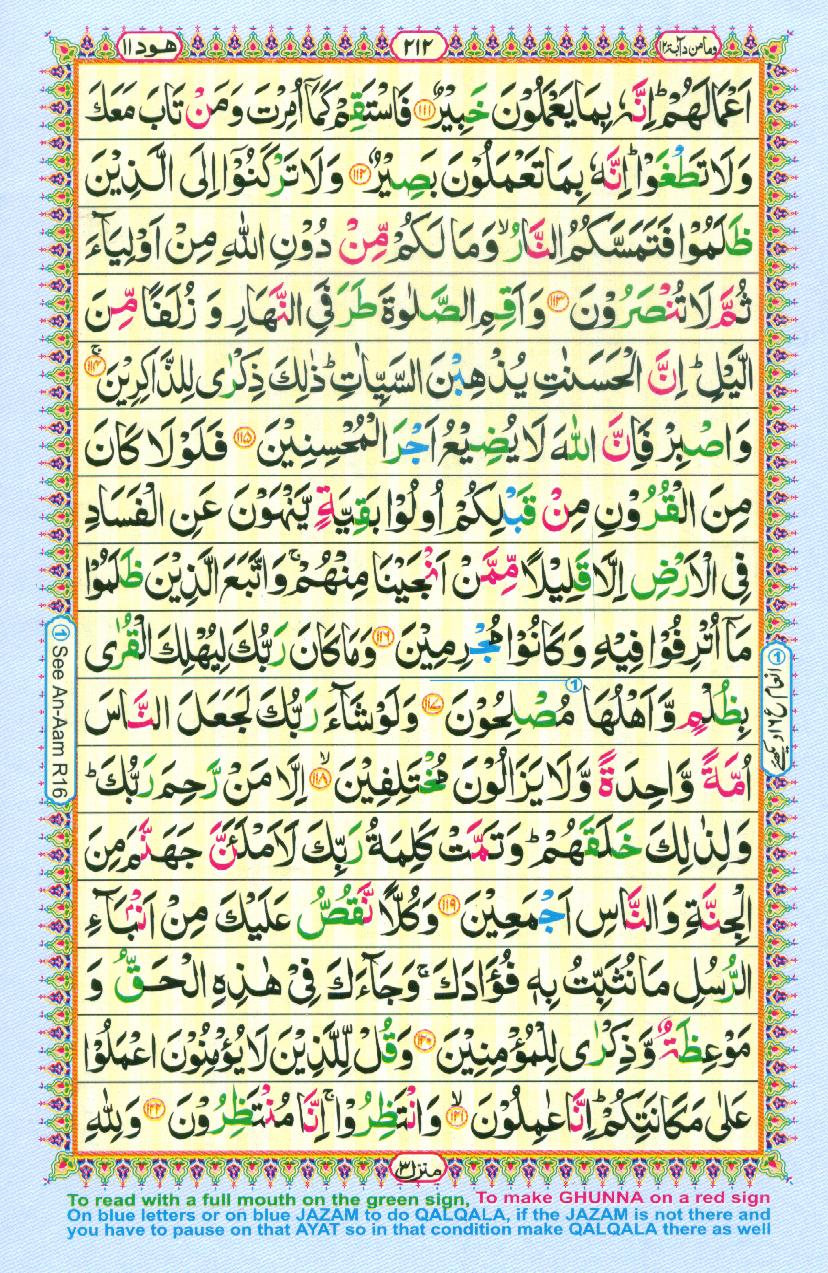 وما من دآبة ١٢
٢١٢
هود ١١
اَعْمَالَهُمْ ؕ اِنَّهٗ بِمَا يَعْمَلُوْنَ خَبِيْرٌ ﴿۱۱۱﴾ فَاسْتَقِمْ كَمَاۤ اُمِرْتَ وَمَنْ تَابَ مَعَكَ
وَلَا تَطْغَوْا ؕ اِنَّهٗ بِمَا تَعْمَلُوْنَ بَصِيْرٌ ﴿۱۱۲﴾ وَلَا تَرْكَنُوْۤا اِلَى الَّذِيْنَ
ظَلَمُوْا فَتَمَسَّكُمُ النَّارُ ۙ وَمَا لَكُمْ مِّنْ دُوْنِ اللّٰهِ مِنْ اَوْلِيَآءَ
ثُمَّ لَا تُنْصَرُوْنَ ﴿۱۱۳﴾ وَاَقِمِ الصَّلٰوةَ طَرَفَيِ النَّهَارِ وَ زُلَفًا مِّنَ
الَّيْلِ ؕ اِنَّ الْحَسَنٰتِ يُذْهِبْنَ السَّيِّاٰتِ ؕ ذٰلِكَ ذِكْرٰى لِلذّٰكِرِيْنَ ۚ ﴿۱۱۴﴾
وَاصْبِرْ فَاِنَّ اللّٰهَ لَا يُضِيْعُ اَجْرَ الْمُحْسِنِيْنَ ﴿۱۱۵﴾ فَلَوْلَا كَانَ
مِنَ الْقُرُوْنِ مِنْ قَبْلِكُمْ اُولُوْا بَقِيَّةٍ يَّنْهَوْنَ عَنِ الْفَسَادِ
فِى الْاَرْضِ اِلَّا قَلِيْلًا مِّمَّنْ اَنْجَيْنَا مِنْهُمْ ۚ وَاتَّبَعَ الَّذِيْنَ ظَلَمُوْا
مَاۤ اُتْرِفُوْا فِيْهِ وَكَانُوْا مُجْرِمِيْنَ ﴿۱۱۶﴾ وَمَا كَانَ رَبُّكَ لِيُهْلِكَ الْقُرٰى
بِظُلْمٍ وَّاَهْلُهَا ① مُصْلِحُوْنَ ﴿۱۱۷﴾ وَلَوْ شَآءَ رَبُّكَ لَجَعَلَ النَّاسَ
اُمَّةً وَّاحِدَةً وَّلَا يَزَالُوْنَ مُخْتَلِفِيْنَ ۙ ﴿۱۱۸﴾ اِلَّا مَنْ رَّحِمَ رَبُّكَ ؕ
وَلِذٰلِكَ خَلَقَهُمْ ؕ وَتَمَّتْ كَلِمَةُ رَبِّكَ لَاَمْلَئَنَّ جَهَنَّمَ مِنَ
الْجِنَّةِ وَالنَّاسِ اَجْمَعِيْنَ ﴿۱۱۹﴾ وَكُلًّا نَّقُصُّ عَلَيْكَ مِنْ اَنْۢبَآءِ
الرُّسُلِ مَا نُثَبِّتُ بِهٖ فُؤَادَكَ ۚ وَجَآءَكَ فِىْ هٰذِهِ الْحَقُّ وَ
مَوْعِظَةٌ وَّذِكْرٰى لِلْمُؤْمِنِيْنَ ﴿۱۲۰﴾ وَقُلْ لِّلَّذِيْنَ لَا يُؤْمِنُوْنَ اعْمَلُوْا
عَلٰى مَكَانَتِكُمْ ؕ اِنَّا عٰمِلُوْنَ ۙ ﴿۱۲۱﴾ وَانْتَظِرُوْا ۚ اِنَّا مُنْتَظِرُوْنَ ﴿۱۲۲﴾ وَلِلّٰهِ
① انعام ع ١٦ دیکھئے
① See An-Aam R16
منزل ٣
To read with a full mouth on the green sign, To make GHUNNA on a red sign
On blue letters or on blue JAZAM to do QALQALA, if the JAZAM is not there and
you have to pause on that AYAT so in that condition make QALQALA there as well